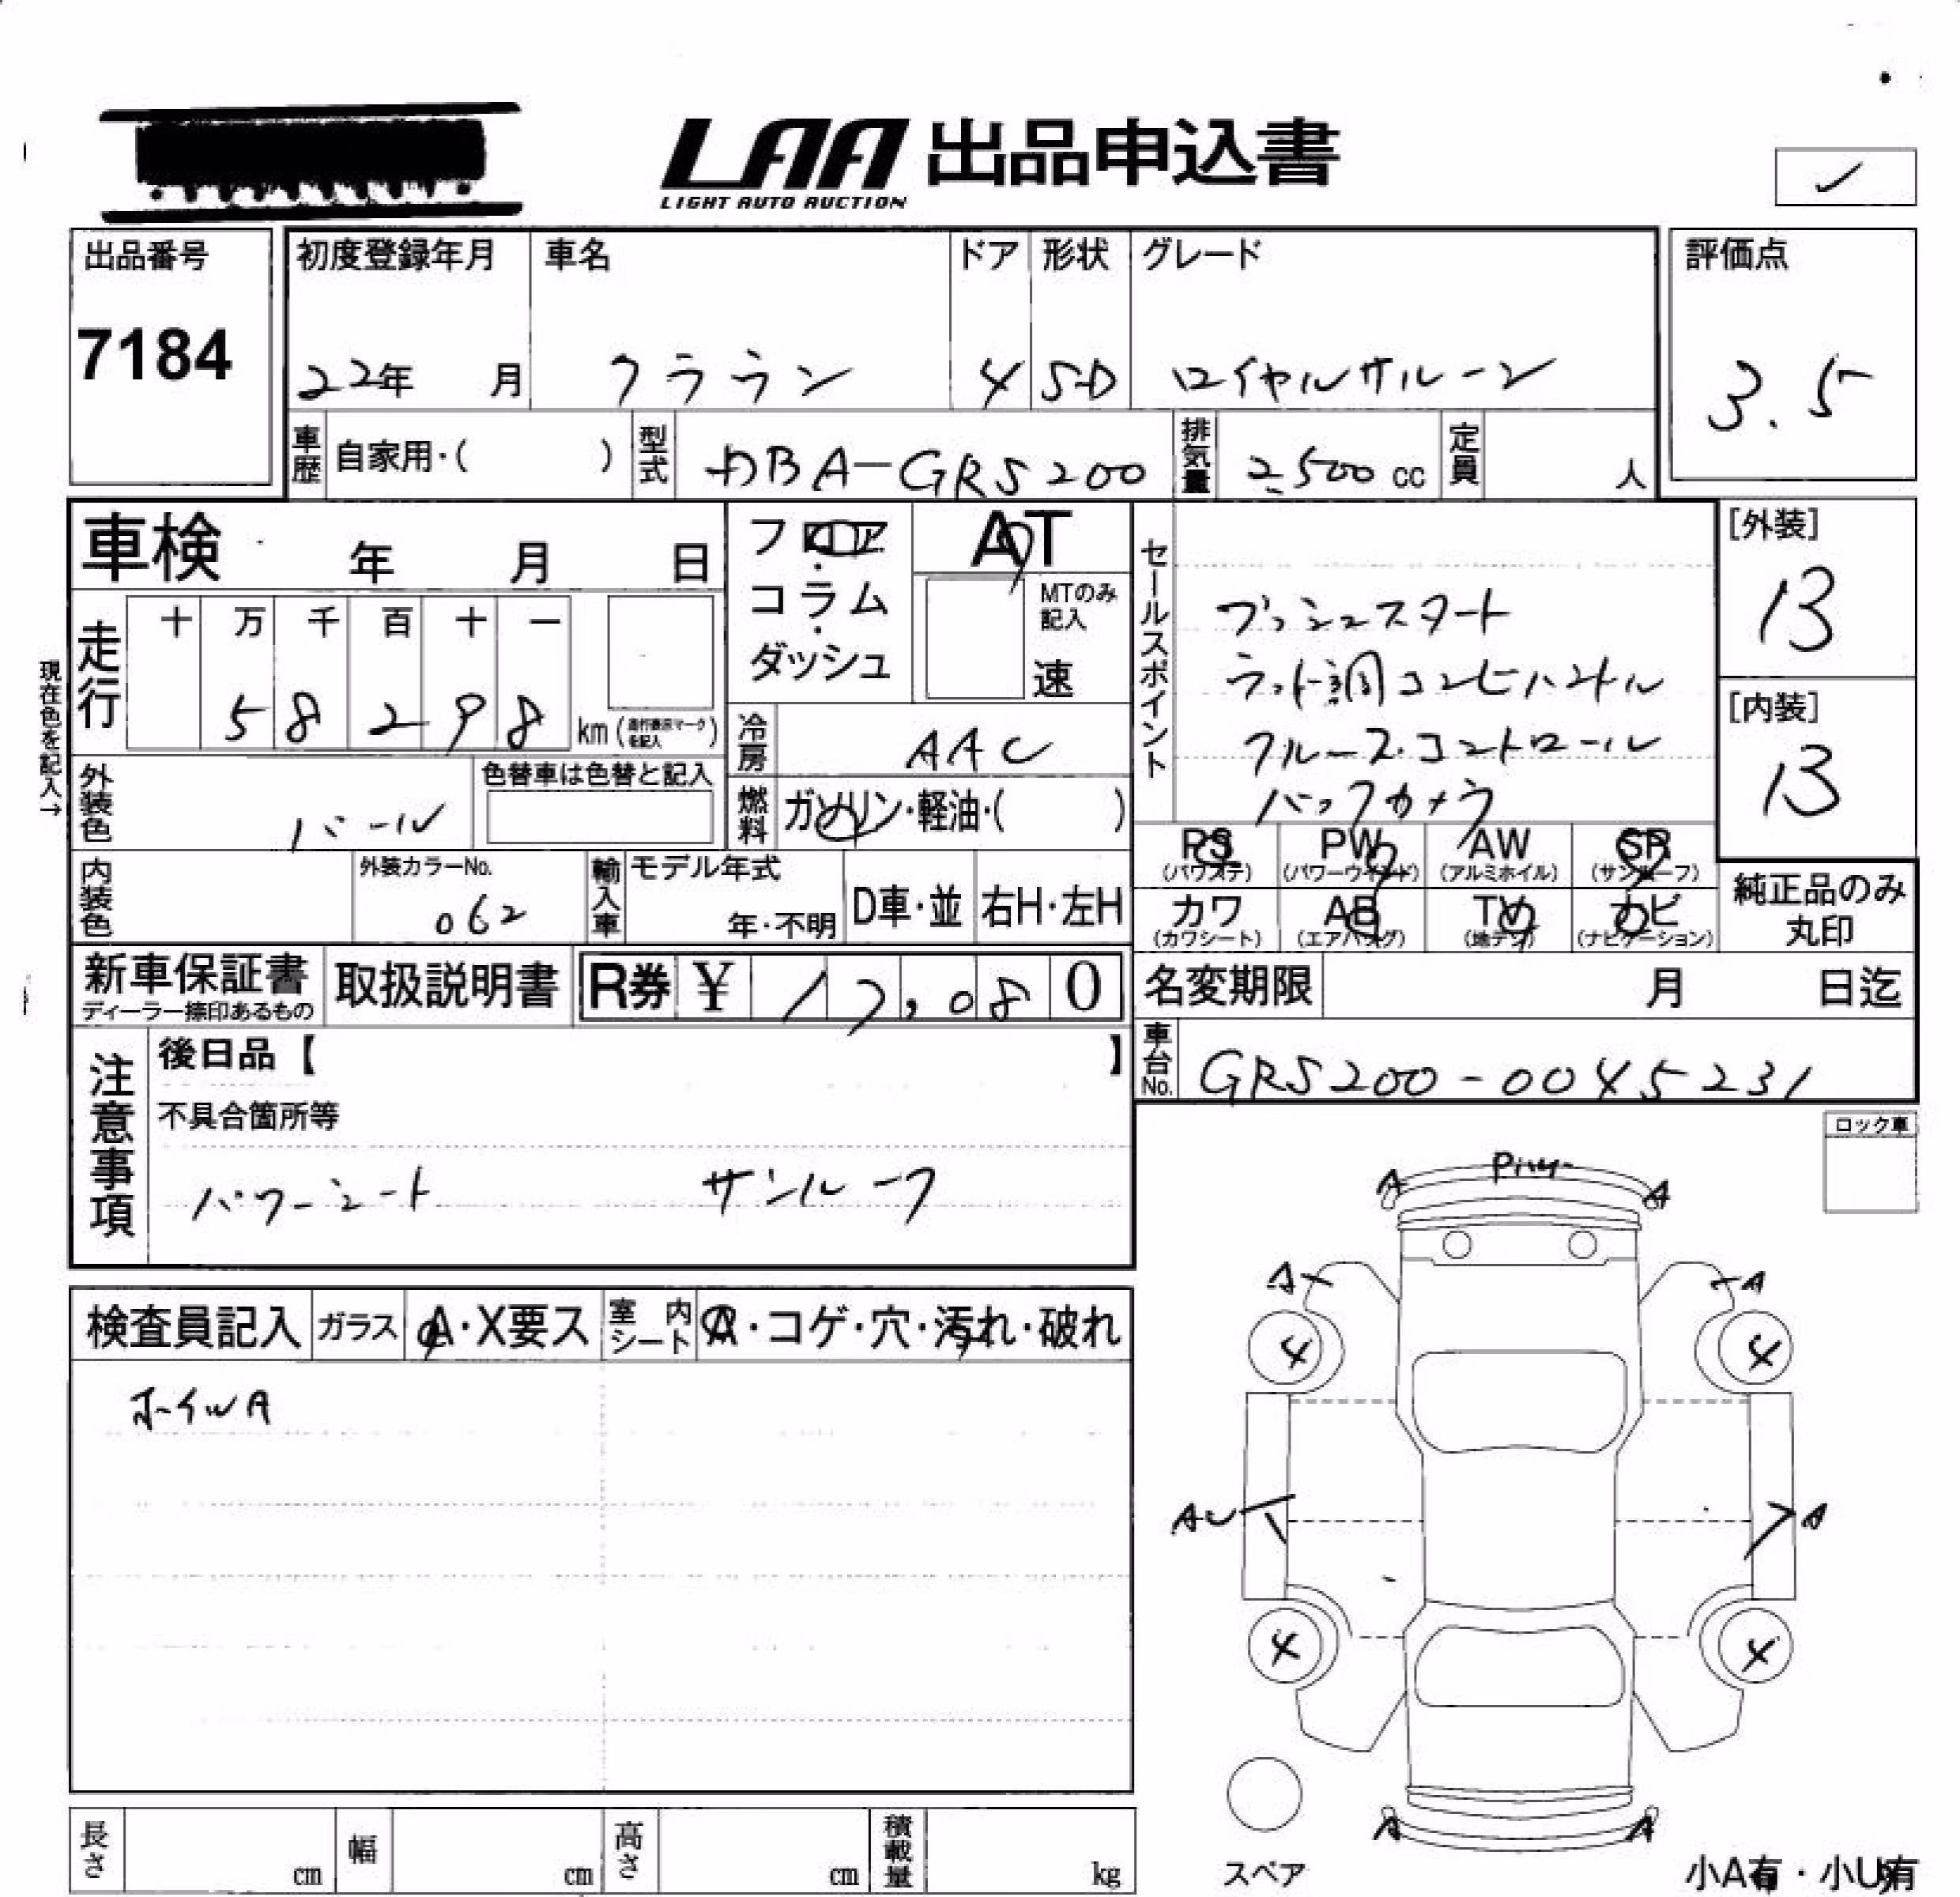 LAA 出品申込書
LIGHT AUTO AUCTION
✓
出品番号
7184
初度登録年月 車名 ドア 形状 グレード
22年 月 クラウン 4 SD ロイヤルサルーン
評価点
3.5
車歴 自家用・( ) 型式 DBA-GRS200 排気量 2,500 cc 定員 人
車検 年 月 日
フロア・コラム・ダッシュ
AT
MTのみ記入
速
走行
十 万 千 百 十 一
5 8 2 9 8 km (走行表示マークを記入)
現在色を記入→
冷房 AAC
外装色 パール
色替車は色替と記入
燃料 ガソリン・軽油・( )
内装色
外装カラーNo.
062
輸入車 モデル年式
年・不明
D車・並 右H・左H
セールスポイント
プッシュスタート
ウッド調コンビハンドル
クルーズ・コントロール
バックカメラ
[外装]
13
[内装]
13
PS (パワステ) PW (パワーウインド) AW (アルミホイル) SR (サンルーフ)
カワ (カワシート) AB (エアバッグ) TV (地デジ) ナビ (ナビゲーション)
純正品のみ丸印
新車保証書
ディーラー捺印あるもの
取扱説明書
R券 ¥ 17,080
名変期限 月 日迄
車台No. GRS200-0045231
注意事項
後日品【 】
不具合箇所等
パワーシート サンルーフ
ロック車
検査員記入 ガラス A・X要ス 室内シート A・コゲ・穴・汚れ・破れ
ホイルA
A A
A A
4 4
AU A
4 4
A A
スペア
小A有・小U有
長さ cm 幅 cm 高さ cm 積載量 kg